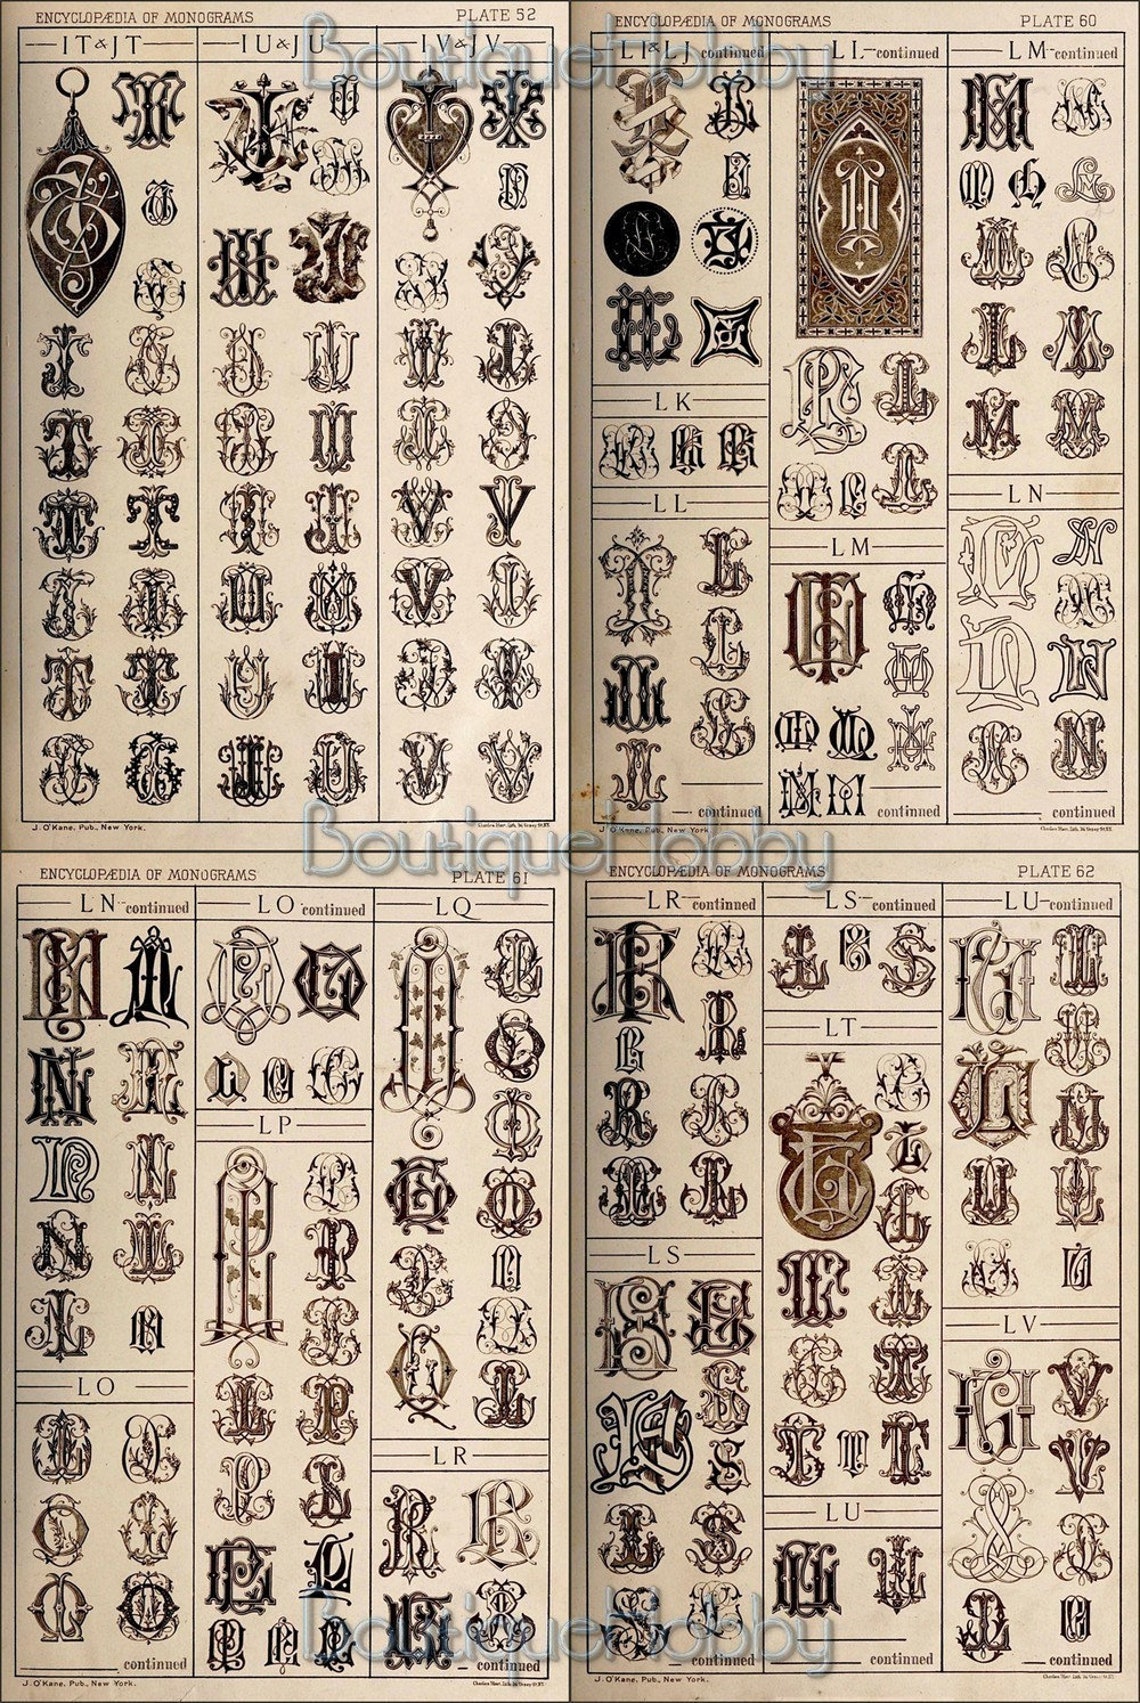 ENCYCLOPÆDIA OF MONOGRAMS PLATE 52
IT & JT IU & JU IV & JV
J. O'Kane, Pub., New York.
ENCYCLOPÆDIA OF MONOGRAMS PLATE 60
LI & LJ continued LL continued LM continued
LK
LL
LM
LN
continued continued continued
J. O'Kane, Pub., New York.
BoutiqueHobby
BoutiqueHobby
ENCYCLOPÆDIA OF MONOGRAMS PLATE 61
LN continued LO continued LQ
LP
LO
LR
continued continued
J. O'Kane, Pub., New York.
ENCYCLOPÆDIA OF MONOGRAMS PLATE 62
LR continued LS continued LU continued
LT
LS
LV
LU
continued continued continued
J. O'Kane, Pub., New York.
BoutiqueHobby
BoutiqueHobby